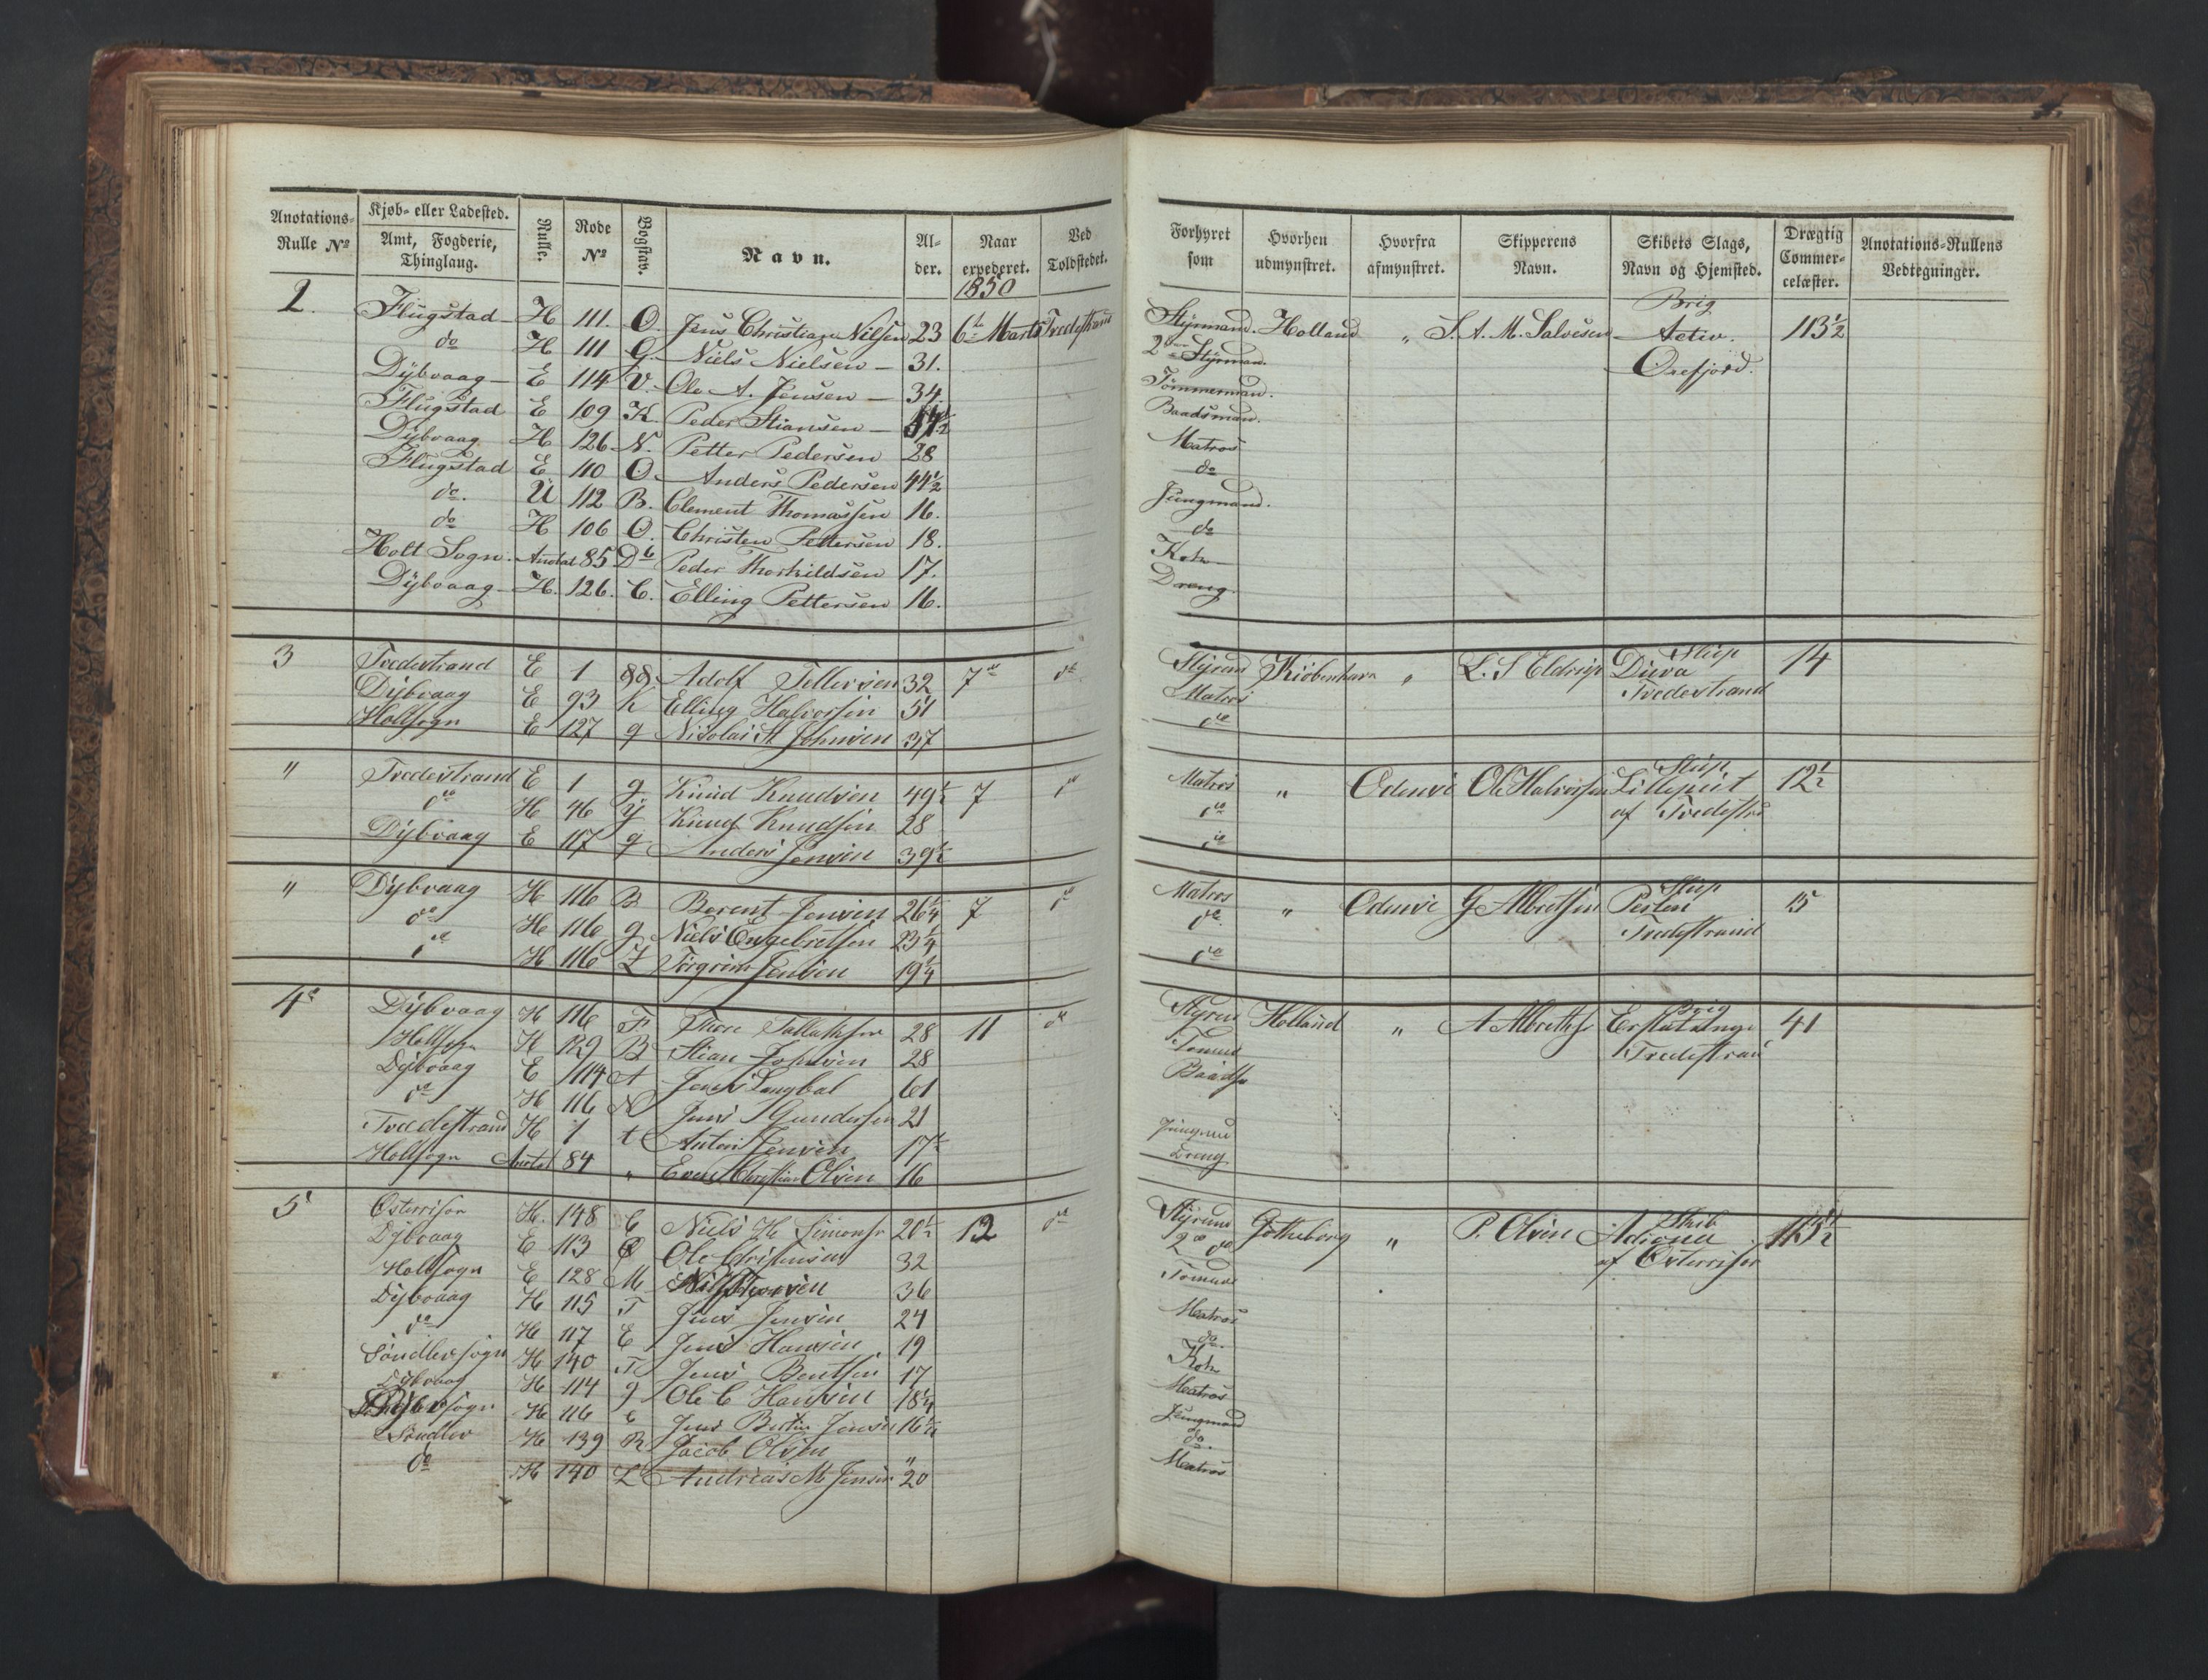 Anotations-Rulle № | Kjøb- eller Ladested. Amt, Fogderie, Thinglaug. | Rulle. | Rode № | Bogstav. | Navn. | Alder. | Naar expederet. | Ved Toldstedet.
1850
2. | Flugstad | H | 111. | O. | Jens Christian Nilsen | 23 | 6te Marts | Tvedestrand
do | H | 111 | G. | Niels Nielsen | 31.
Dÿbvaag | E | 114 | V. | Ole A. Jensen | 34.
Flugstad | E | 109 | K. | Peder Stiansen
Dÿbvaag | H | 126 | N. | Petter Pedersen | 28
Flugstad | E | 110 | O. | Anders Pedersen | 44½
do. | U | 112 | B. | Clement Thomassen | 16.
do | H | 106 | O. | Christen Pettersen | 18.
Holt Sogn. | Anotat | 85 | Peder Thorkildsen | 17.
Dÿbvaag | H. | 126. | C. | Elling Pettersen | 16.
3 | Tvedestrand | E | 1 | Adolf Tellersen | 32 | 7de | do
Dÿbvaag | E | 93 | K | Elling Halvorsen | 51
Holtsogn | E | 127 | g | Nicolai Johnsen | 37
" | Tvedestrand | E | 1 | g | Knud Knudsen | 49½ | 7 | do
do | H | 46 | Knud Knudsen | 28
Dÿbvaag | E | 117 | g | Anders Jensen | 39½
" | Dÿbvaag | H | 116 | B | Berent Jensen | 26¼ | 7 | do
do | H | 116 | g | Niels Engebretsen | 23¼
do | H | 116 | Z | Torgrim Jensen | 19¼
4 | Dÿbvaag | H | 116 | F | Thore | 28 | 11 | do
Holtsogn | H | 129 | B | Stian Johnsen | 28
Dÿbvaag | E | 114 | A | Jens | 61
do | H | 116 | N | Jens Gundersen | 21
Tvedestrand | H | 1 | t | Anton Jensen | 17½
Holtsogn | Anotat | 84 | " | Even Christian Olsen | 16
5 | Østerrisør | H. | 148 | C | Niels H Simonsen | 20½ | 12 | do
Dÿbvaag | E | 113 | Ole Christensen | 32
Holtsogn | E | 128 | M | 36
Dÿbvaag | H | 115 | T | Jens Jensen | 24
do | H | 117 | E | Jens Hansen | 19
Søndlevsogn | H | 140 | T | Jens Bentsen | 17
Dÿbvaag | H | 114 | g | Ole C Hansen | 18¼
H | 116 | Jens Jensen
Søndlev | H | 139 | R | Jacob Olsen | "
do | H | 140 | L | Andreas M Jensen | 20
Forhyret som | Hvorhen udmynstret. | Hvorfra afmynstret. | Skipperens Navn. | Skibets Slags, Navn og Hjemsted. | Drægtig Commercelæster. | Anotations-Rullens Vedtegninger.
Brig
Stÿrmand. | Holland | " | S. A. M. Salvesen | Activ. | 113½
2den Stÿrman. | Oxefjord.
Tömmerman.
Baadsman.
Matros
do
Jungmand.
do
Kok
Dreng.
Slup
Stÿrm | Kiøbenhavn | " | L. S Eldrup | Tvedestrand | 14
Matros
do
Slup
Matros | " | Odense | Ole Halvorsen | Lilleput | 12½
do | af Tvedestr
do
Slup
Matros | " | Odense | G Albretsen | Perlen | 15
do | Tvedestrand
do
Brig
Stÿrm | Holland | " | A Albrethsen | Erstatning | 41
Tomm | Tvedestrand
Baads
Jungmd
Dreng
Skib
Stÿrmd | Gøtheborg | " | P. Olsen
2den do | af Østerrisør
Tomm
Matros
do.
Kok
Matros
Jungmand
do.
Matros